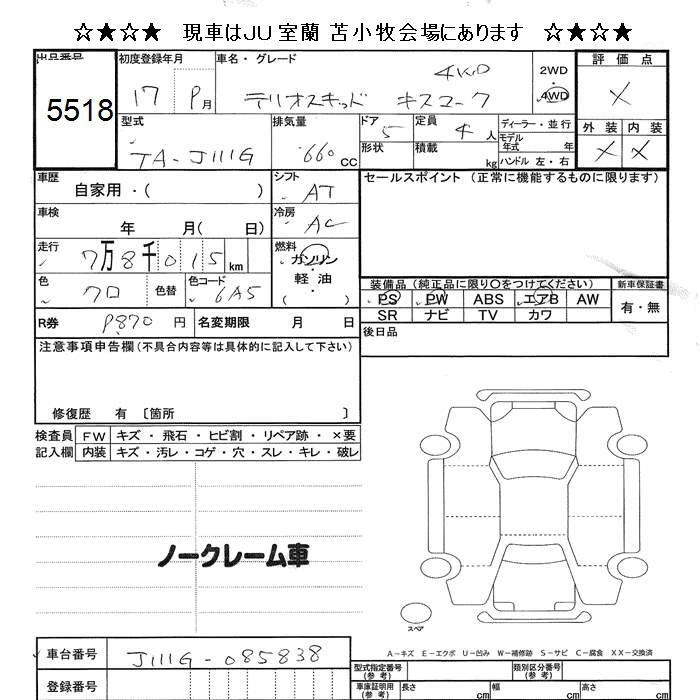 ☆★☆★ 現車はJU室蘭 苫小牧会場にあります ☆★☆★
出品番号 初度登録年月 車名・グレード 評価点
5518
17 9月 テリオスキッド キスマーク 4WD
2WD
4WD
X
型式 排気量 ドア 定員 ディーラー・並行 外装 内装
TA-J111G 660 CC 5 4 人
モデル年式 年
形状 積載 kg ハンドル 左・右
X X
車歴 自家用・( ) シフト AT
セールスポイント (正常に機能するものに限ります)
車検 年 月( 日) 冷房 AC
走行 7万8千015 km 燃料 ガソリン
軽油
( )
色 クロ 色替 色コード 6A5
装備品 (純正品に限り○をつけてください) 新車保証書
PS PW ABS エアB AW 有・無
SR ナビ TV カワ
R券 9870 円 名変期限 月 日
後日品
注意事項申告欄(不具合内容等は具体的に記入して下さい)
修復歴 有 〔箇所 〕
検査員 FW キズ・飛石・ヒビ割・リペア跡・×要
記入欄 内装 キズ・汚レ・コゲ・穴・スレ・キレ・破レ
ノークレーム車
スペア
A-キズ E-エクボ U-凹み W-補修跡 S-サビ C-腐食 XX-交換済
車台番号 J111G-085838
型式指定番号(参考) 類別区分番号(参考)
登録番号
車庫証明用(参考) 長さ cm 幅 cm 高さ cm